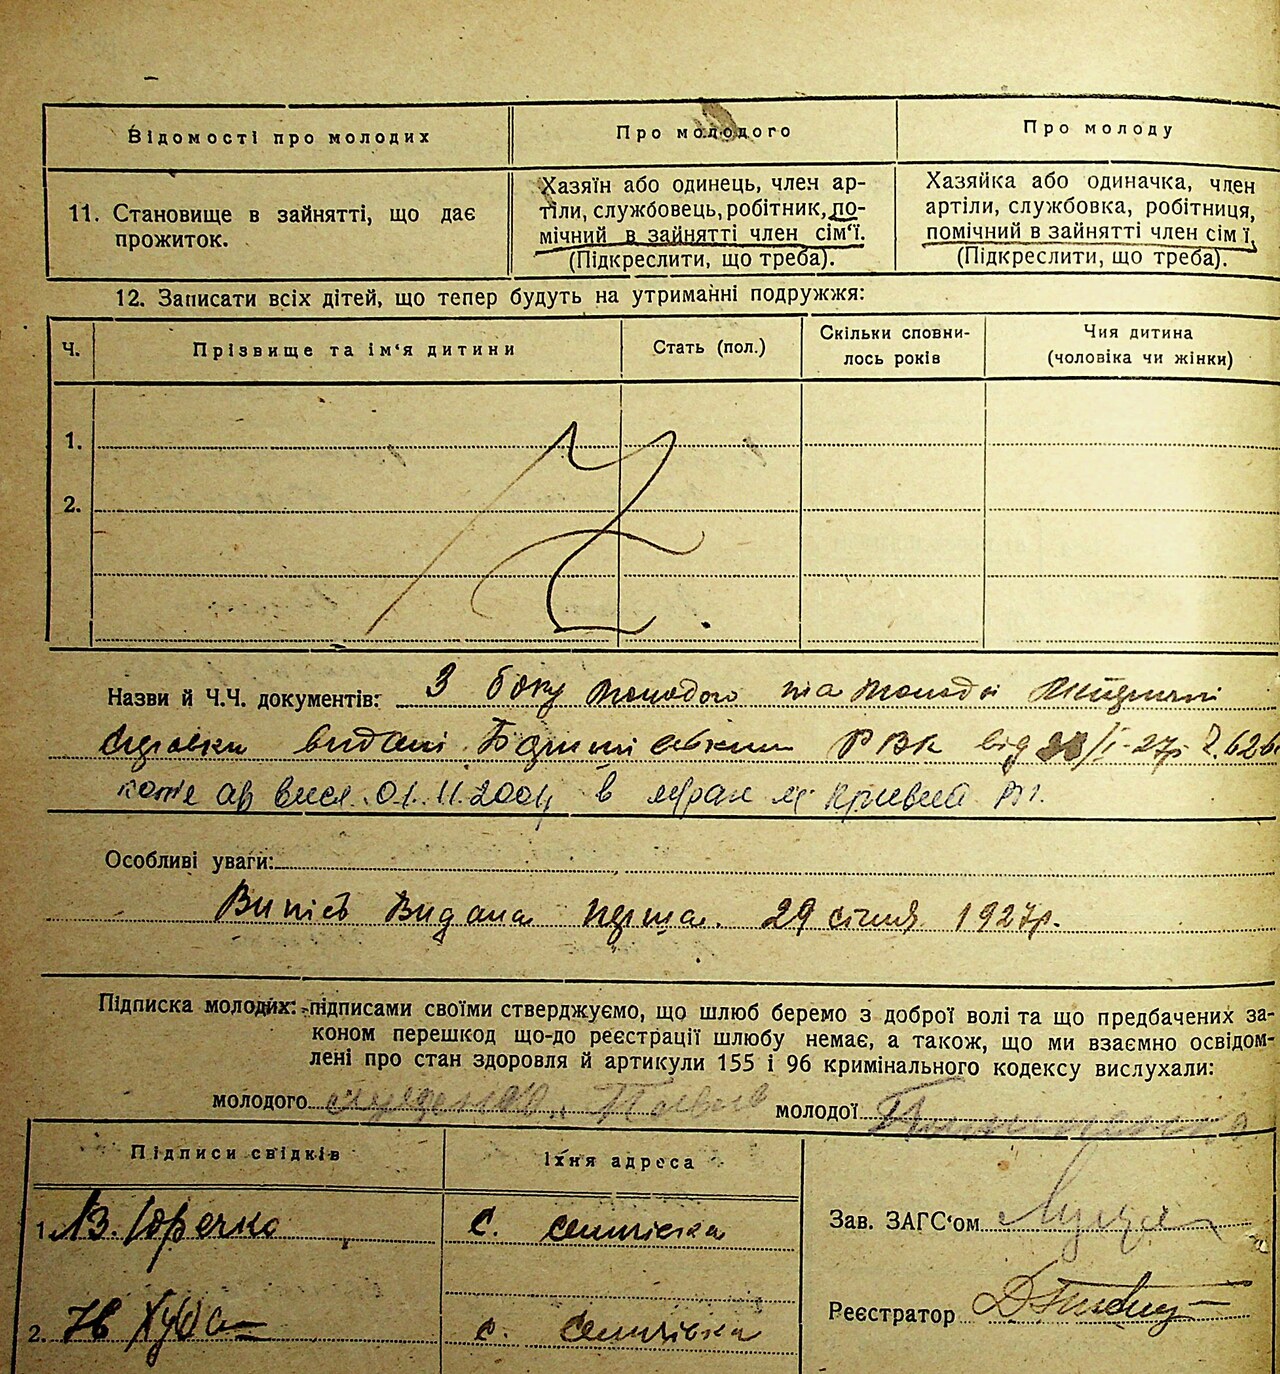 Відомості про молодих
Про молодого
Про молоду
11. Становище в зайнятті, що дає
прожиток.
Хазяїн або одинець, член ар-
тіли, службовець, робітник, по-
мічний в зайнятті член сім'ї.
(Підкреслити, що треба).
Хазяйка або одиначка, член
артіли, службовка, робітниця,
помічний в зайнятті член сім ї,
(Підкреслити, що треба).
12. Записати всіх дітей, що тепер будуть на утриманні подружжя:
Ч.
Прізвище та ім'я дитини
Стать (пол.)
Скільки сповни-
лось років
Чия дитина
(чоловіка чи жінки)
1.
2.
Назви й Ч.Ч. документів: З боку молодого та молоді
видані РВК від /І-27р.
01.11.2004 в м. Кривий Ріг.
Особливі уваги:
Випись видана перша. 29 січня 1927р.
Підписка молодих: підписами своїми стверджуємо, що шлюб беремо з доброї волі та що предбачених за-
коном перешкод що-до реєстрації шлюбу немає, а також, що ми взаємно освідом-
лені про стан здоровля й артикули 155 і 96 кримінального кодексу вислухали:
молодого
молодої
Підписи свідків
Їхня адреса
1. Юречко
с.
2.
с.
Зав. ЗАГС'ом
Реєстратор